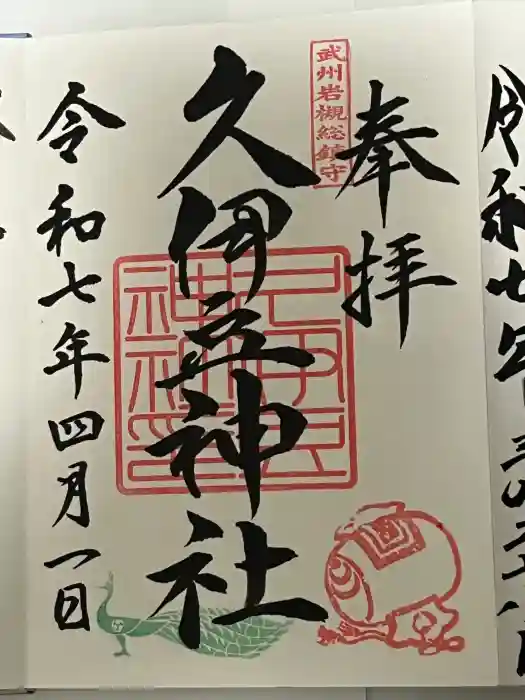 奉拝
武州岩槻総鎮守
久伊豆神社
令和七年四月一日
令和七年三